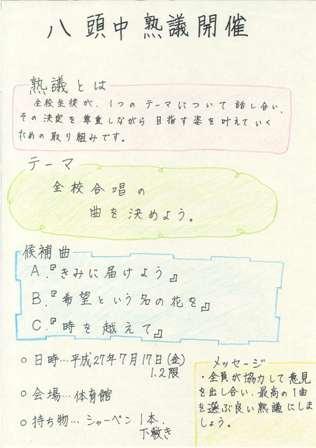 八頭中熟議開催
熟議とは
全校生徒が、1つのテーマについて話し合い、
その決定を尊重しながら目指す姿を叶えていく
ための取り組みです。
テーマ
全校合唱の
曲を決めよう。
候補曲
A.『きみに届けよう』
B.『希望という名の花を』
C.『時を越えて』
○日時…平成27年7月17日(金)
1.2限
○会場…体育館
○持ち物…シャーペン1本、
下敷き
メッセージ
・全員が協力して意見
を出し合い、最高の1曲
を選ぶ良い熟議にしま
しょう。